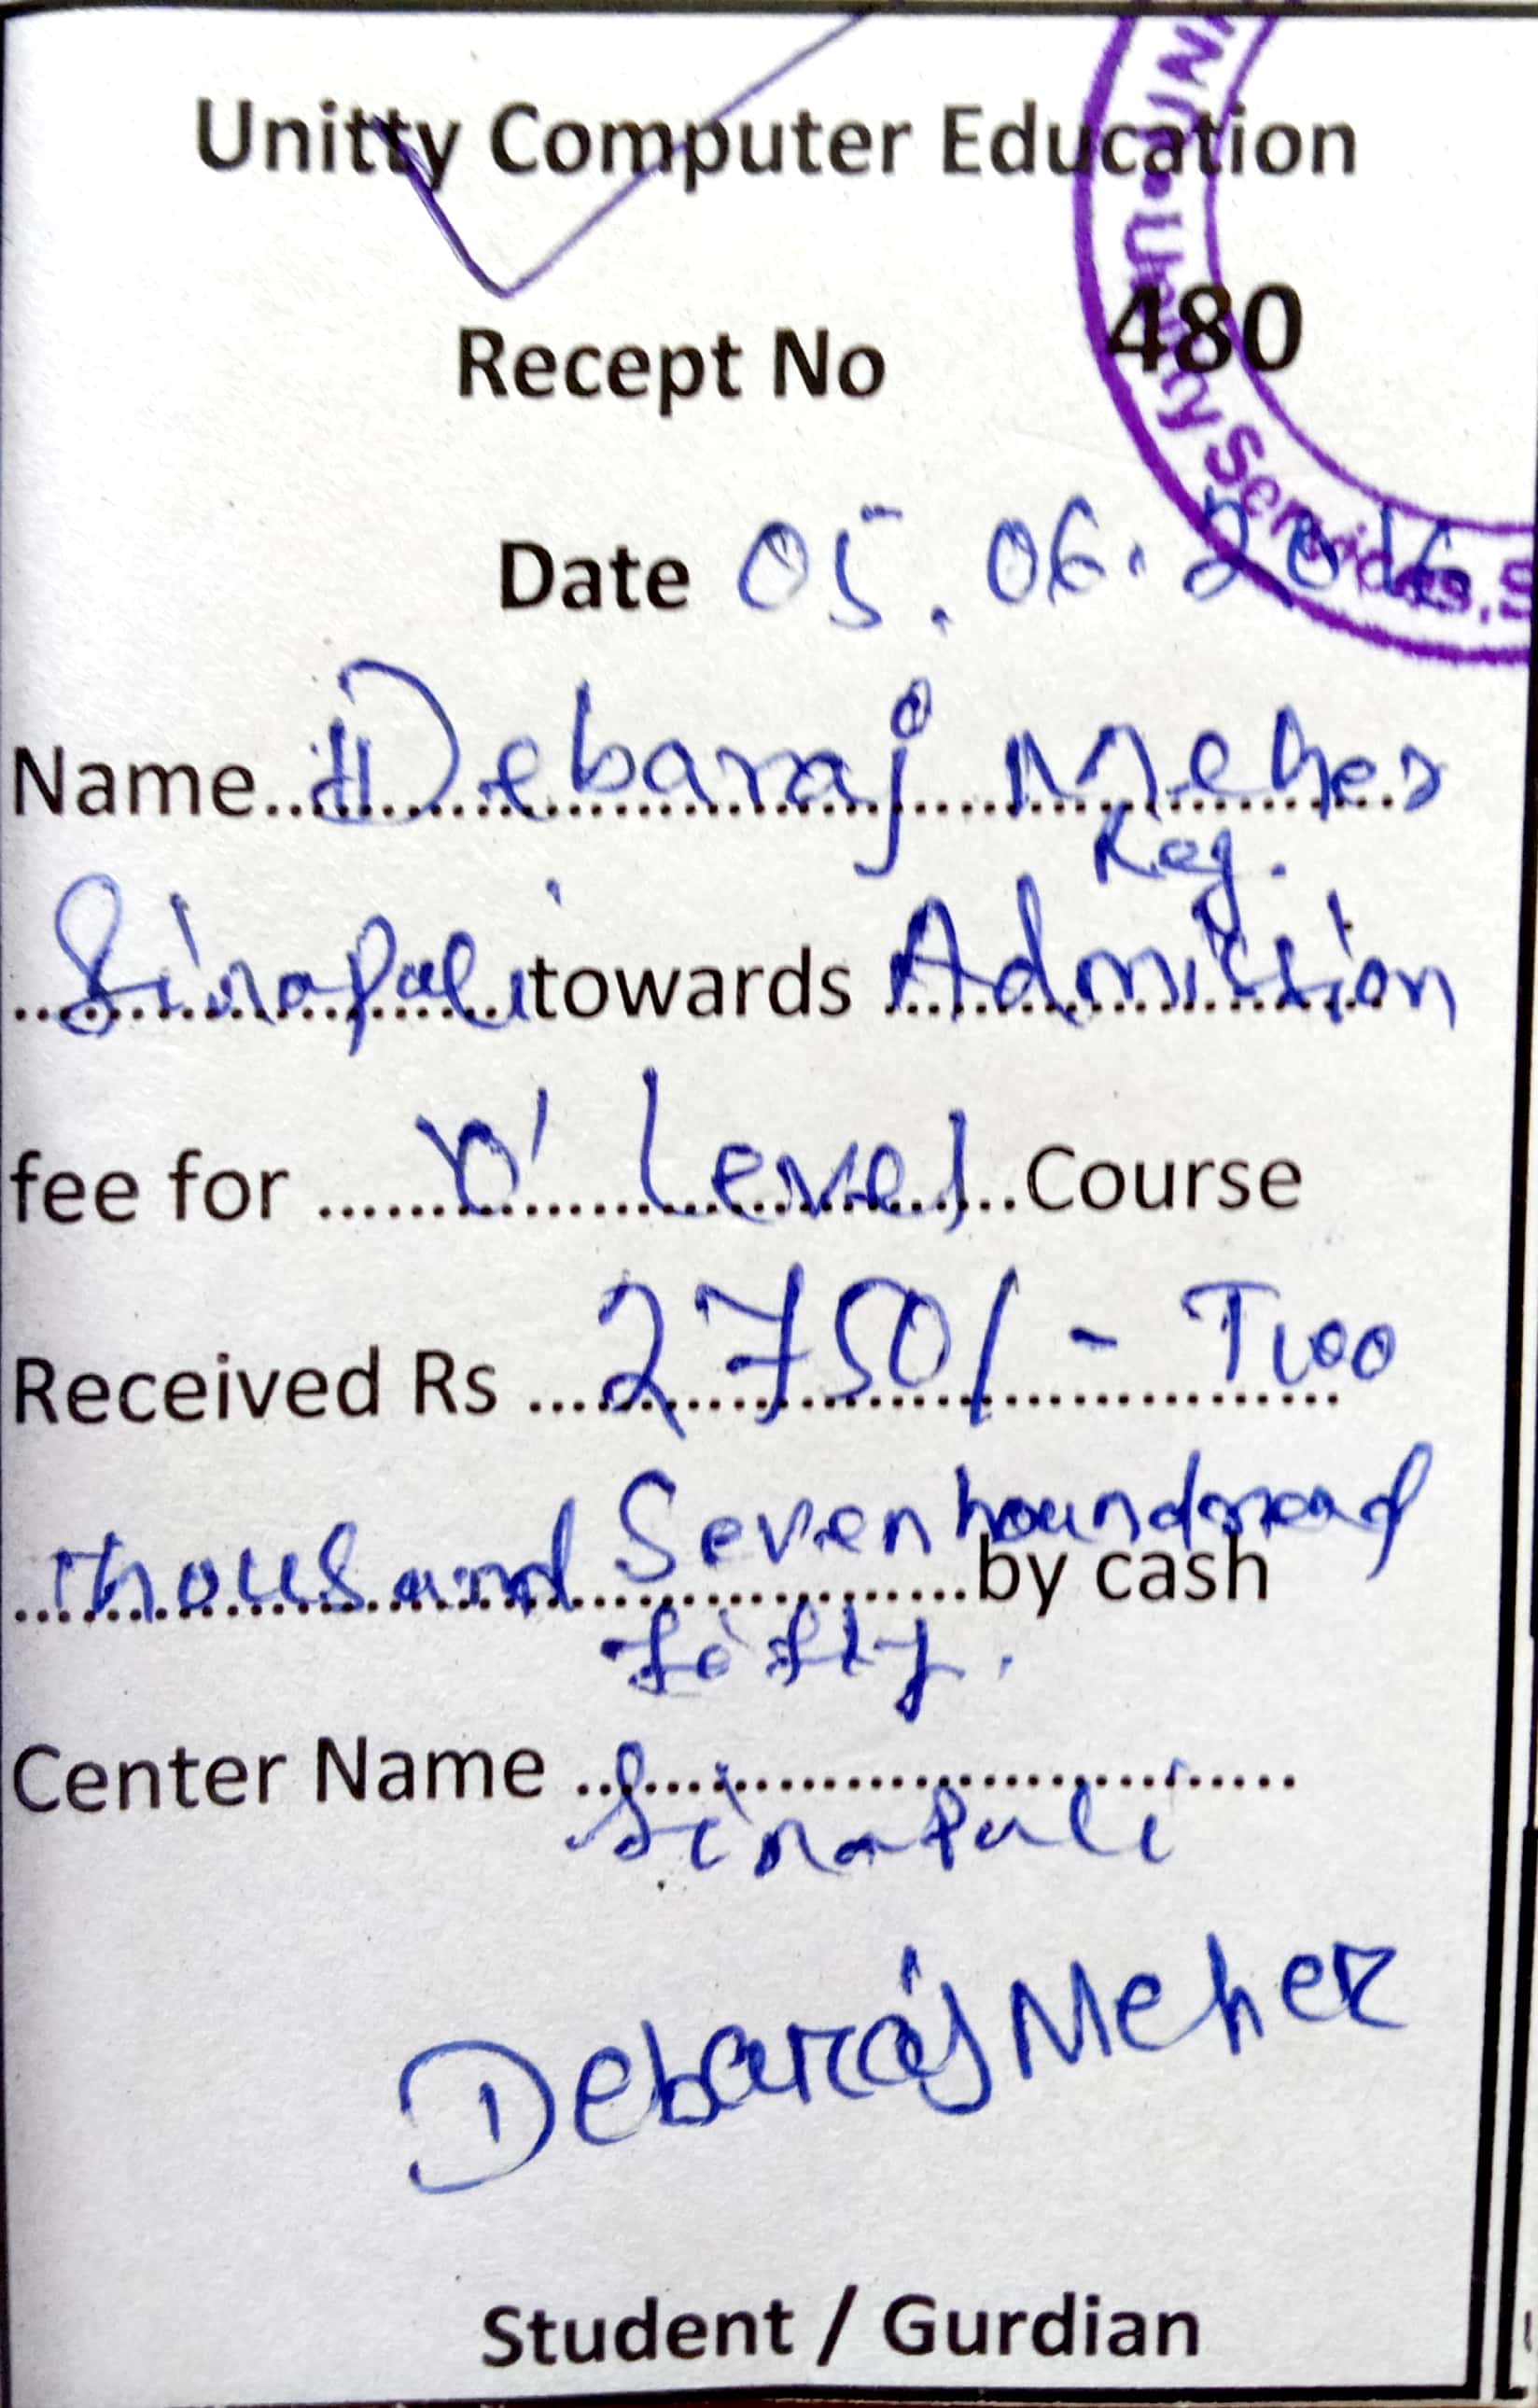 Unitty Computer Education
Recept No 480
Date 05.06.2016
Name........Debaraj Meher
Reg.
Sinapali towards Admission
fee for ......'O' Level......Course
Received Rs ...2750/- Two
thousand Seven houndread by cash
fifty.
Center Name ....................
Sinapali
Debaraj Meher
Student / Gurdian